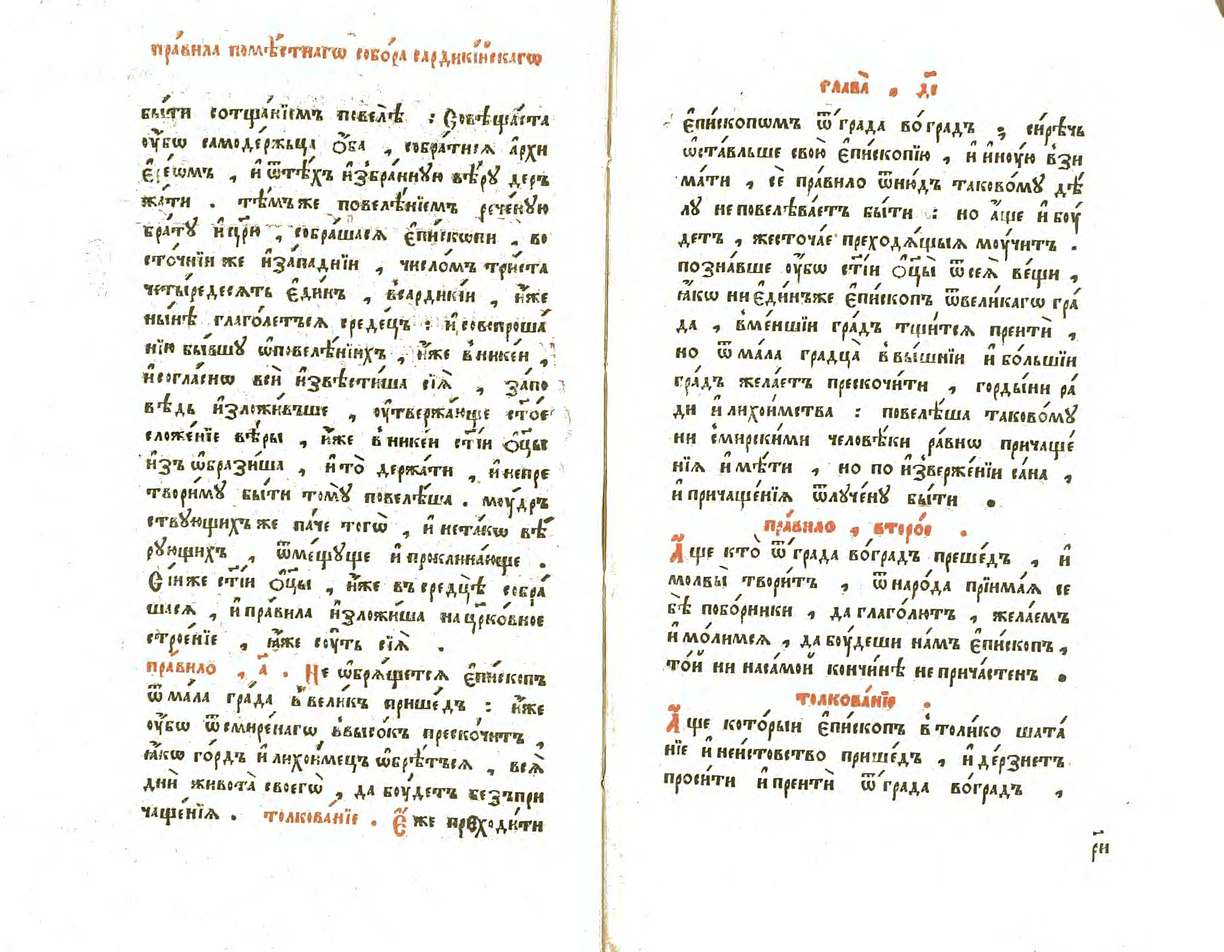 пра́вила помѣ́стнагѡ собо́ра сардикі́йскагѡ
бы́ти сотща́нїемъ повелѣ̀ : Совѣща́ста
ᲂу҆́бѡ самоде́ржьца ѻ҆́ба , собра́тисѧ а҆рхи
е҆ре́ѡмъ , и҆ ѿтѣ́хъ и҆збра́ннꙋю вѣ́рꙋ дер
жа́ти . тѣ́мъже повелѣ́нїемъ рече́ною
бра́тꙋ и҆ цр҃ю̀ , собра́шасѧ є҆пи́скопи , во
сто́чнїи же и҆за́паднїи , число́мъ три́ста
четы́редесѧть є҆ди́нъ , в̾сардикі́и , и҆́же
ны́нѣ глаго́летьсѧ сре́децъ : и҆ совопроша́
нїю бы́вшꙋ ѡ҆повелѣ́нїихъ , и҆́же в̾нике́и ,
и҆согла́снѡ всѝ и҆звѣсти́ша сїѧ̀ , за́по
вѣдь и҆зложи́вше , ᲂу҆твержа́юще ст҃о́е
сложе́нїе вѣ́ры , и҆́же в̾нике́и ст҃і́и ѻ҆ц҃ы̀
и҆зъ ѡ҆брази́ша , и҆ то̀ держа́ти , и҆ непре
твори́мꙋ бы́ти томꙋ̀ повелѣ́ша . моу́дръ
ствꙋющихъ же па́че тогѡ̀ , и҆ нета́кѡ вѣ́
рꙋющихъ , ѿме́щꙋще и҆ проклина́юще .
Сі́и же ст҃і́и ѻ҆ц҃ы̀ , и҆́же въ сре́дцѣ собра́
шасѧ , и҆ пра́вила и҆зложи́ша на цр҃ко́вное
строе́нїе , ꙗ҆́же сꙋ́ть сїѧ̀ .
пра́вило , а҃ . Не ѡ҆брѧ́щетсѧ є҆пи́скопъ
ѿ ма́ла гра́да в̾ вели́къ прише́дъ : и҆́же
ᲂу҆́бѡ ѿ смире́нагѡ в̾высо́къ преско́читъ ,
ꙗ҆́кѡ го́рдъ и҆ лихои́мецъ ѡ҆брѣ́тъсѧ , всѧ̀
дни̑ живота̀ своегѡ̀ , да боу́детъ безъпри
чаще́нїѧ . толкова́нїе . Е҆́же преходи́ти
глава̀ . д҃і
є҆пи́скопѡмъ ѿ гра́да во́градъ ; си́рѣчь
ѡ҆ста́вльше свою̀ є҆писко́пїю , и҆ и҆ноу́ю взи
ма́ти , сѐ пра́вило ѿню́дъ таково́мꙋ дѣ́
лꙋ не повелѣва́етъ бы́ти : но а҆́ще и҆ боу́
детъ , жесточа́е преходѧ́щыѧ моу́читъ .
позна́вше ᲂу҆́бо ст҃і́и ѻ҆ц҃ы̀ ѿ сеѧ̀ ве́щи ,
ꙗ҆́кѡ ни є҆ди́нъже є҆пи́скопъ ѿвели́кагѡ гра́
да , в̾ме́ншїи гра́дъ тщи́тсѧ преитѝ ,
но ѿ ма́ла градца̀ в̾ вы́шнїи и҆ бо́льшїи
гра́дъ жела́етъ прескочи́ти , горды́ни ра́
ди и҆ лихои́мства : повелѣ́ша таково́мꙋ
ни смирски́ми человѣ́ки ра́внѡ причаще́
нїѧ и҆мѣ́ти , но по и҆зверже́нїи са́на ,
и҆ причаще́нїѧ ѿлꙋче́нꙋ бы́ти .
пра́вило , второ́е .
А҆́ще кто̀ ѿ гра́да во́градъ преше́дъ , и҆
молвы̀ твори́тъ , ѿ наро́да прїима́ѧ се
бѣ̀ побо́рники , да глаго́лютъ , жела́емъ
и҆ мо́лимсѧ , да боу́деши на́мъ є҆пи́скопъ ,
то́й ни наса́мой кончи́нѣ не прича́стенъ .
толкова́нїе .
А҆́ще кото́рыи є҆пи́скопъ в̾ толи́ко шата́
нїе и҆ неи́стовство прише́дъ , и҆ де́рзнетъ
проси́ти и҆ преитѝ ѿ гра́да во́градъ ,
р҃и